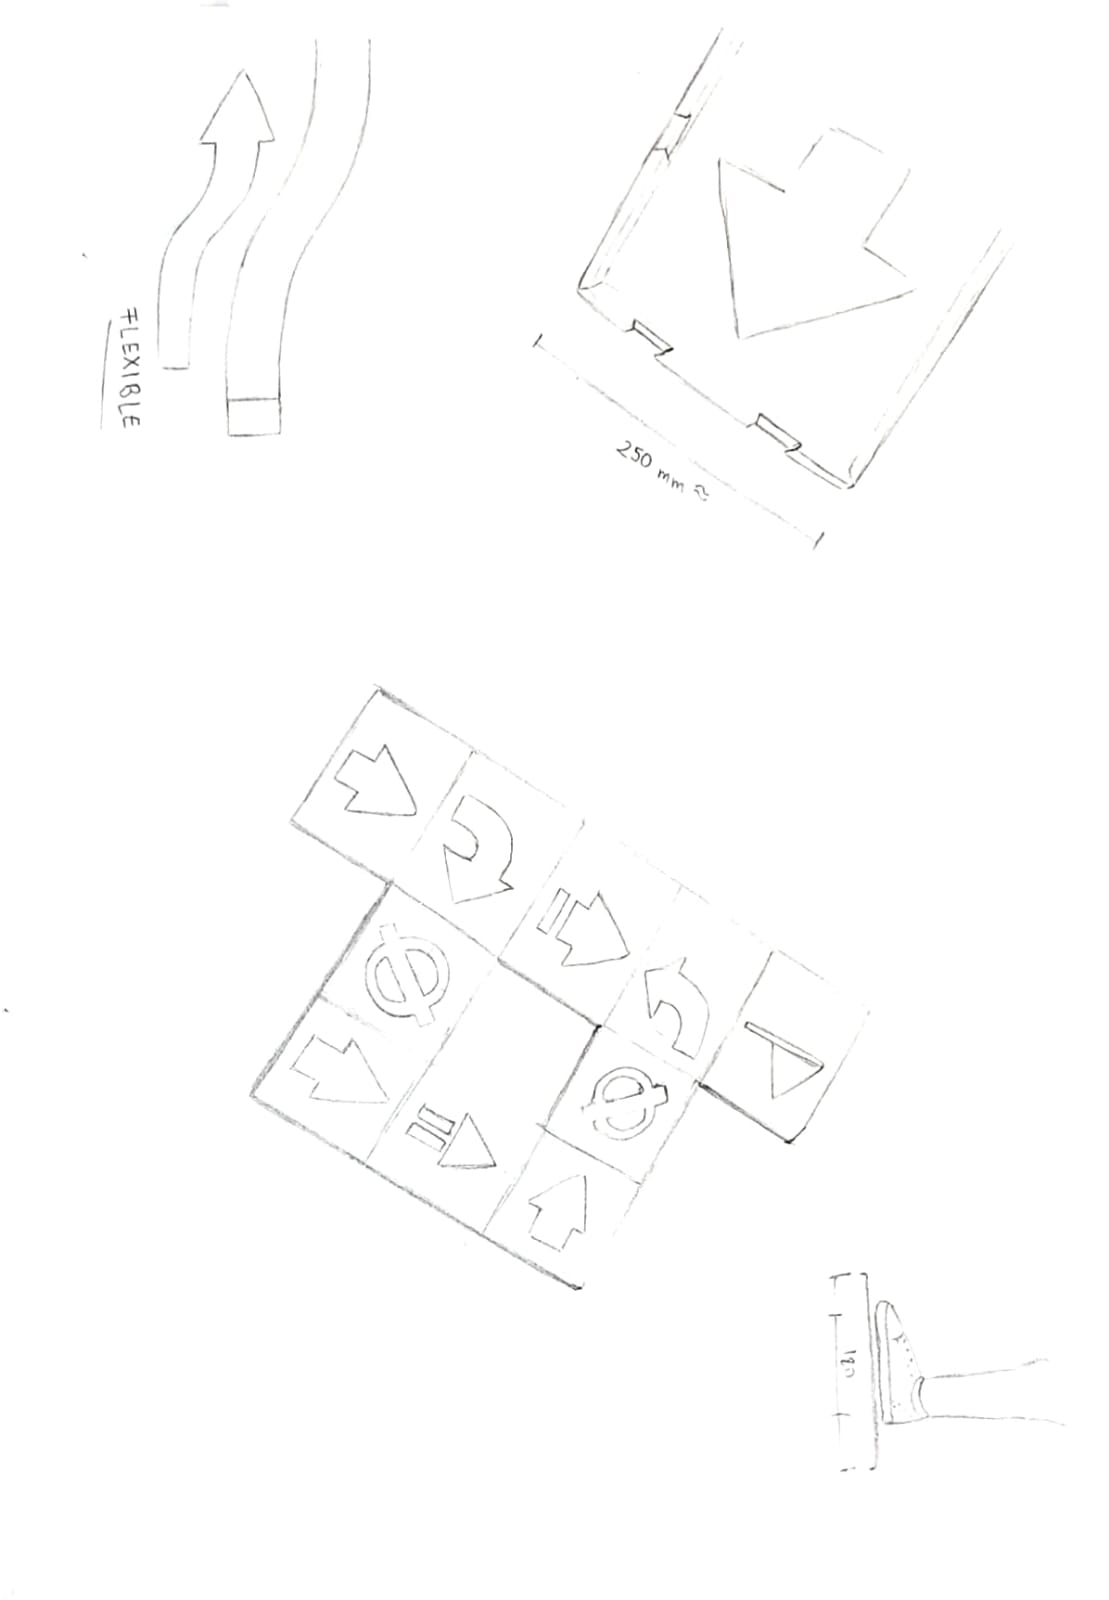 FLEXIBLE
250 mm ≈
180